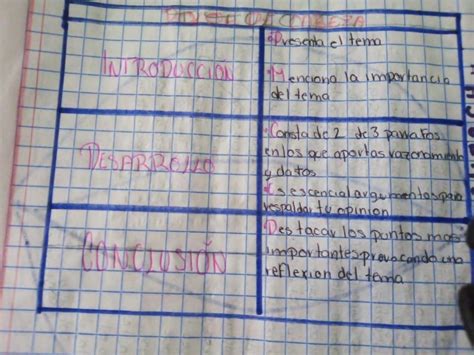 INTRODUCCION
Presenta el tema
Menciona la importancia
del tema
DESARROLLO
Consta de 2 de 3 parrafos
en los que aportas razonamiento
y datos
Es escencial argumentos para
respaldar tu opinion
CONCLUSIÓN
Destacar los puntos mas
importantes provocando una
reflexion del tema